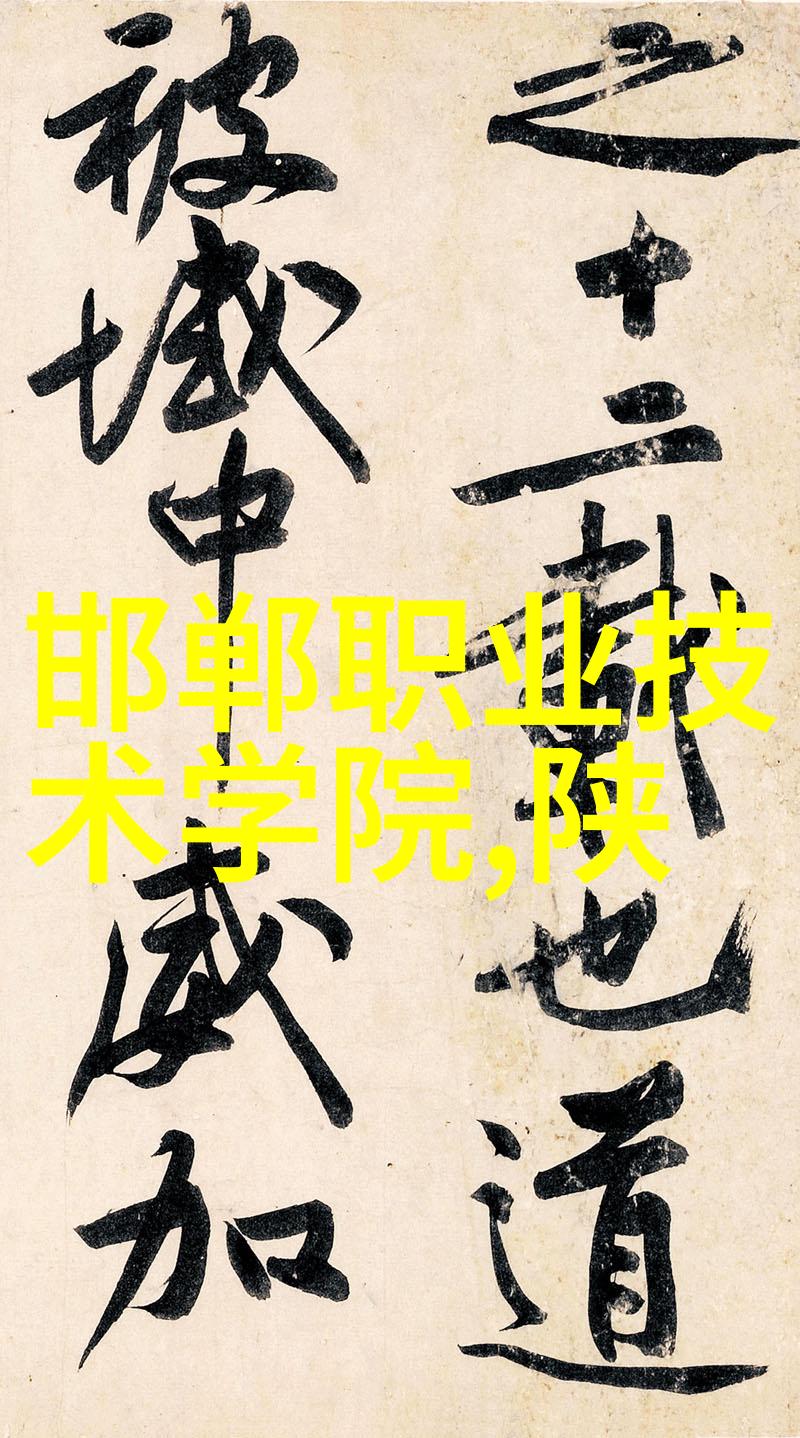 之十二載也道
被域中威加
邯郸职业技
术学院,陕